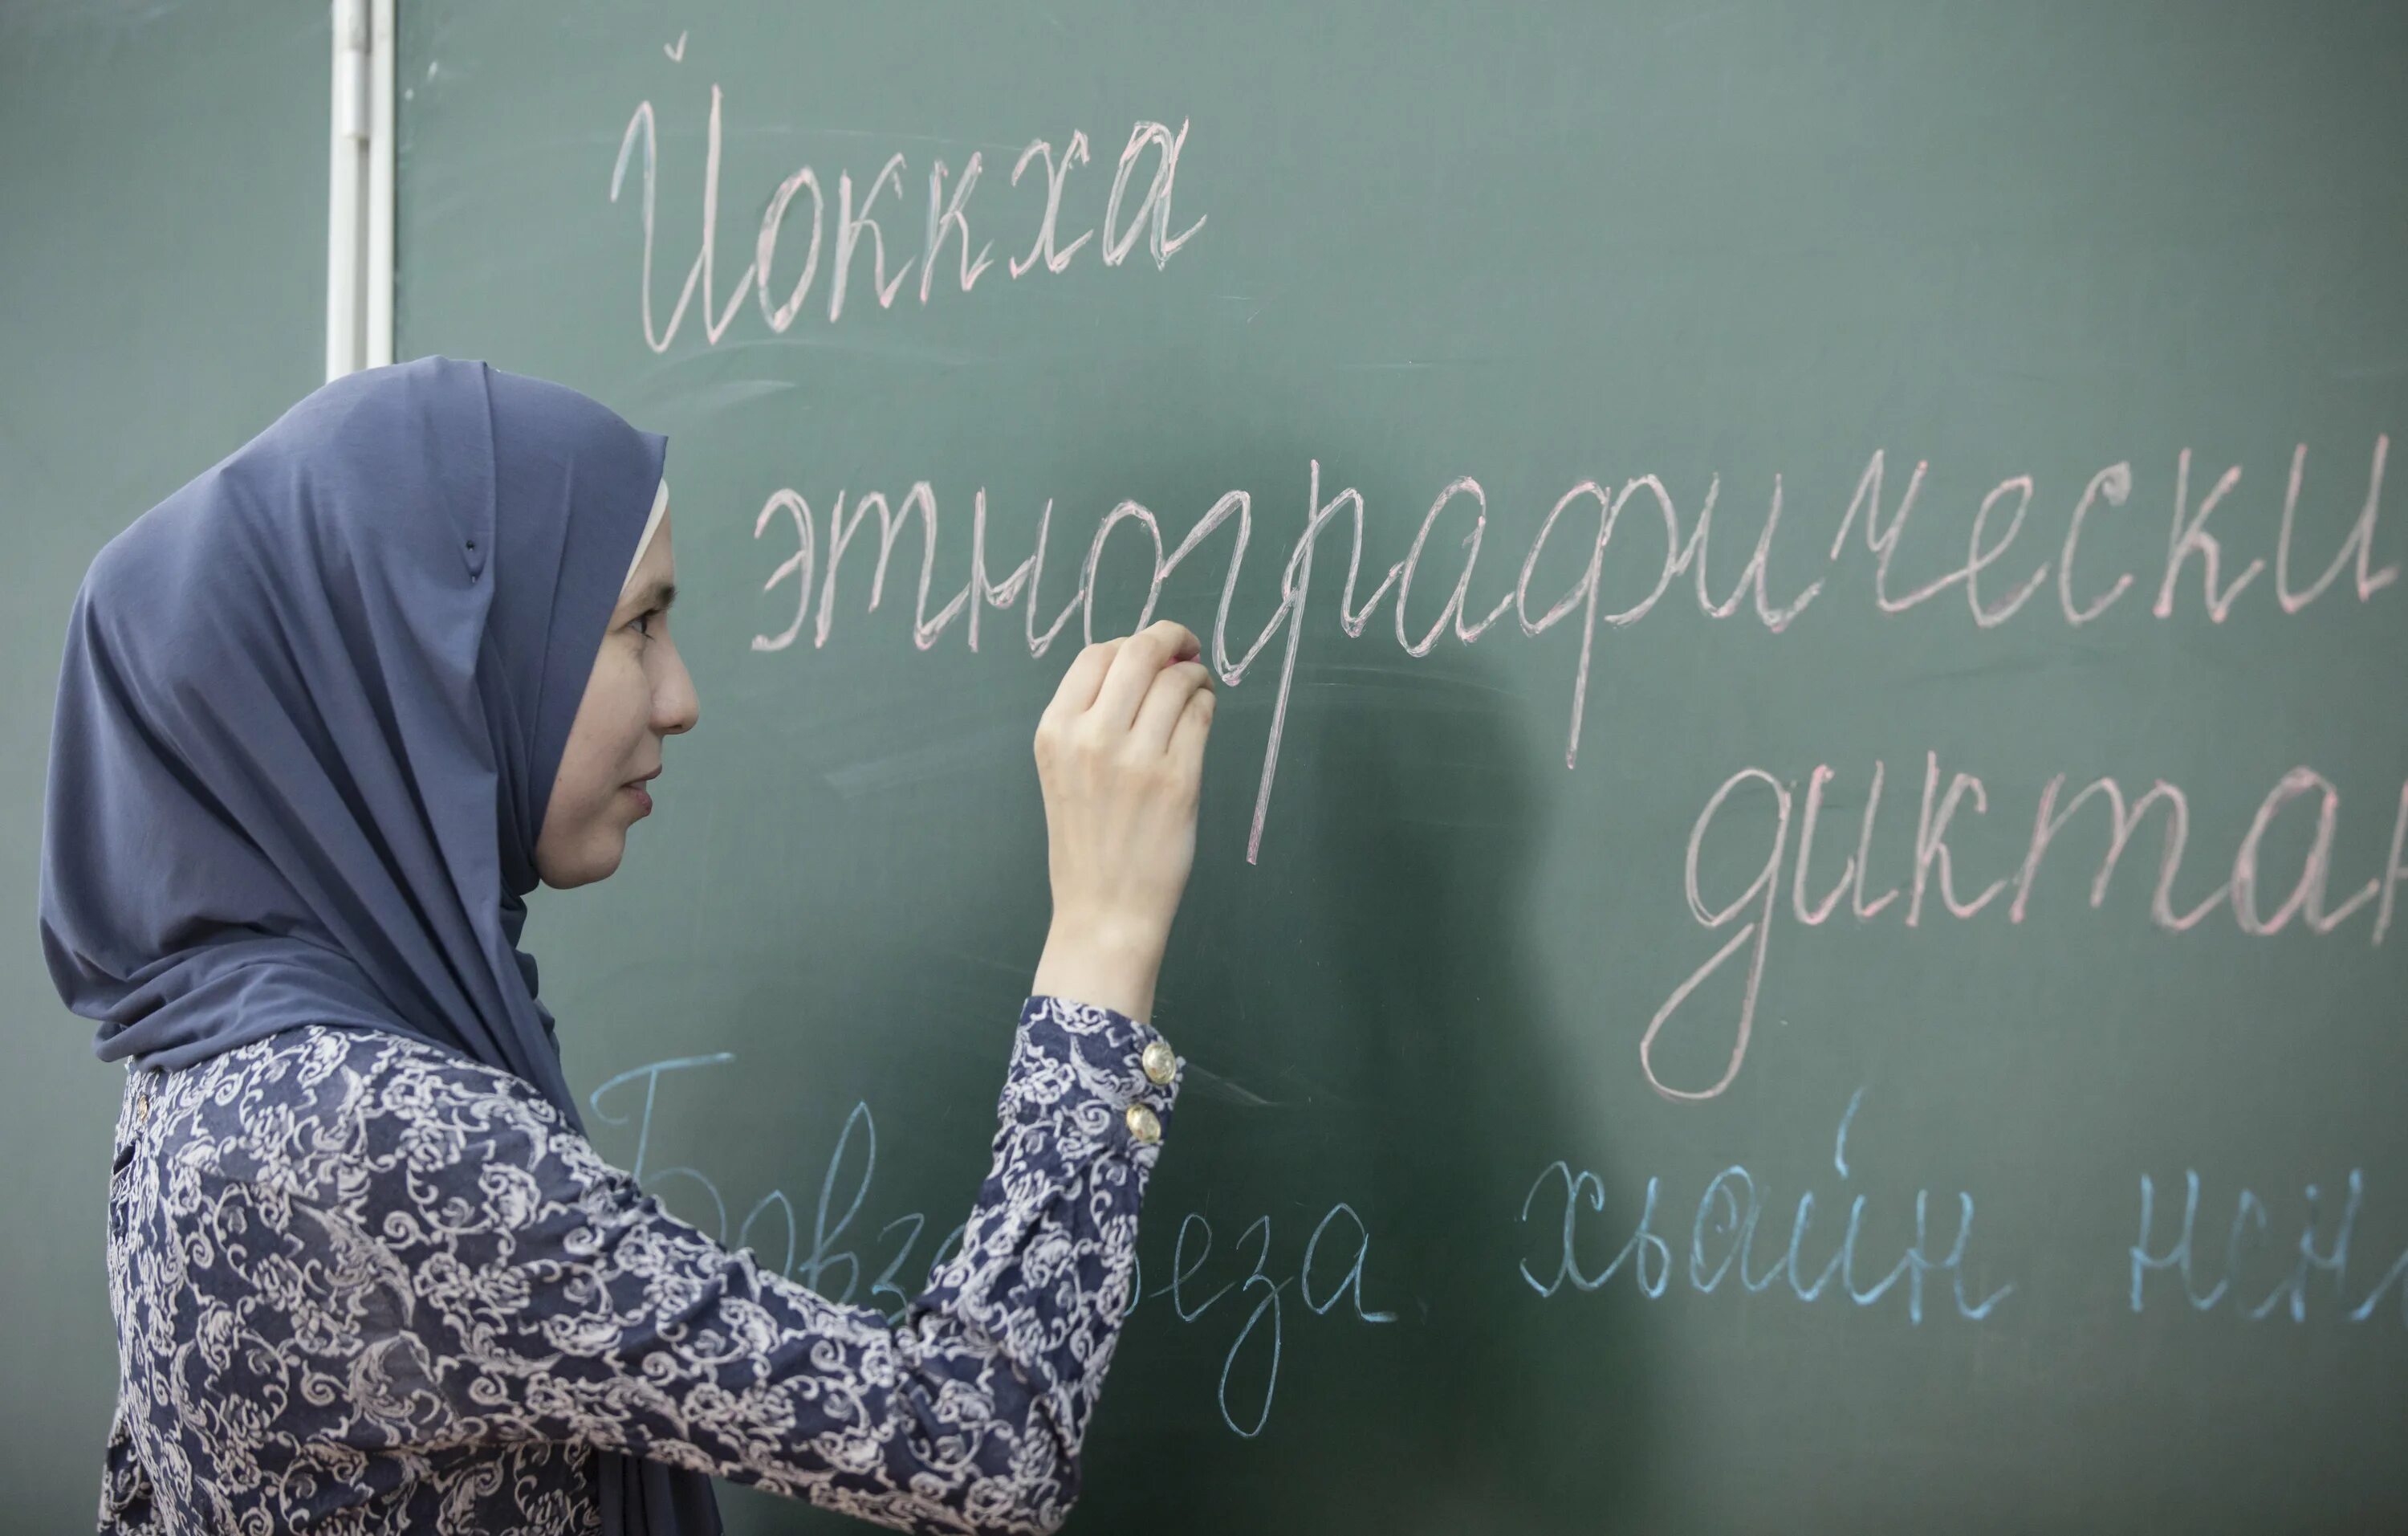 Йоккха
этнографически
диктан
хьайн нен